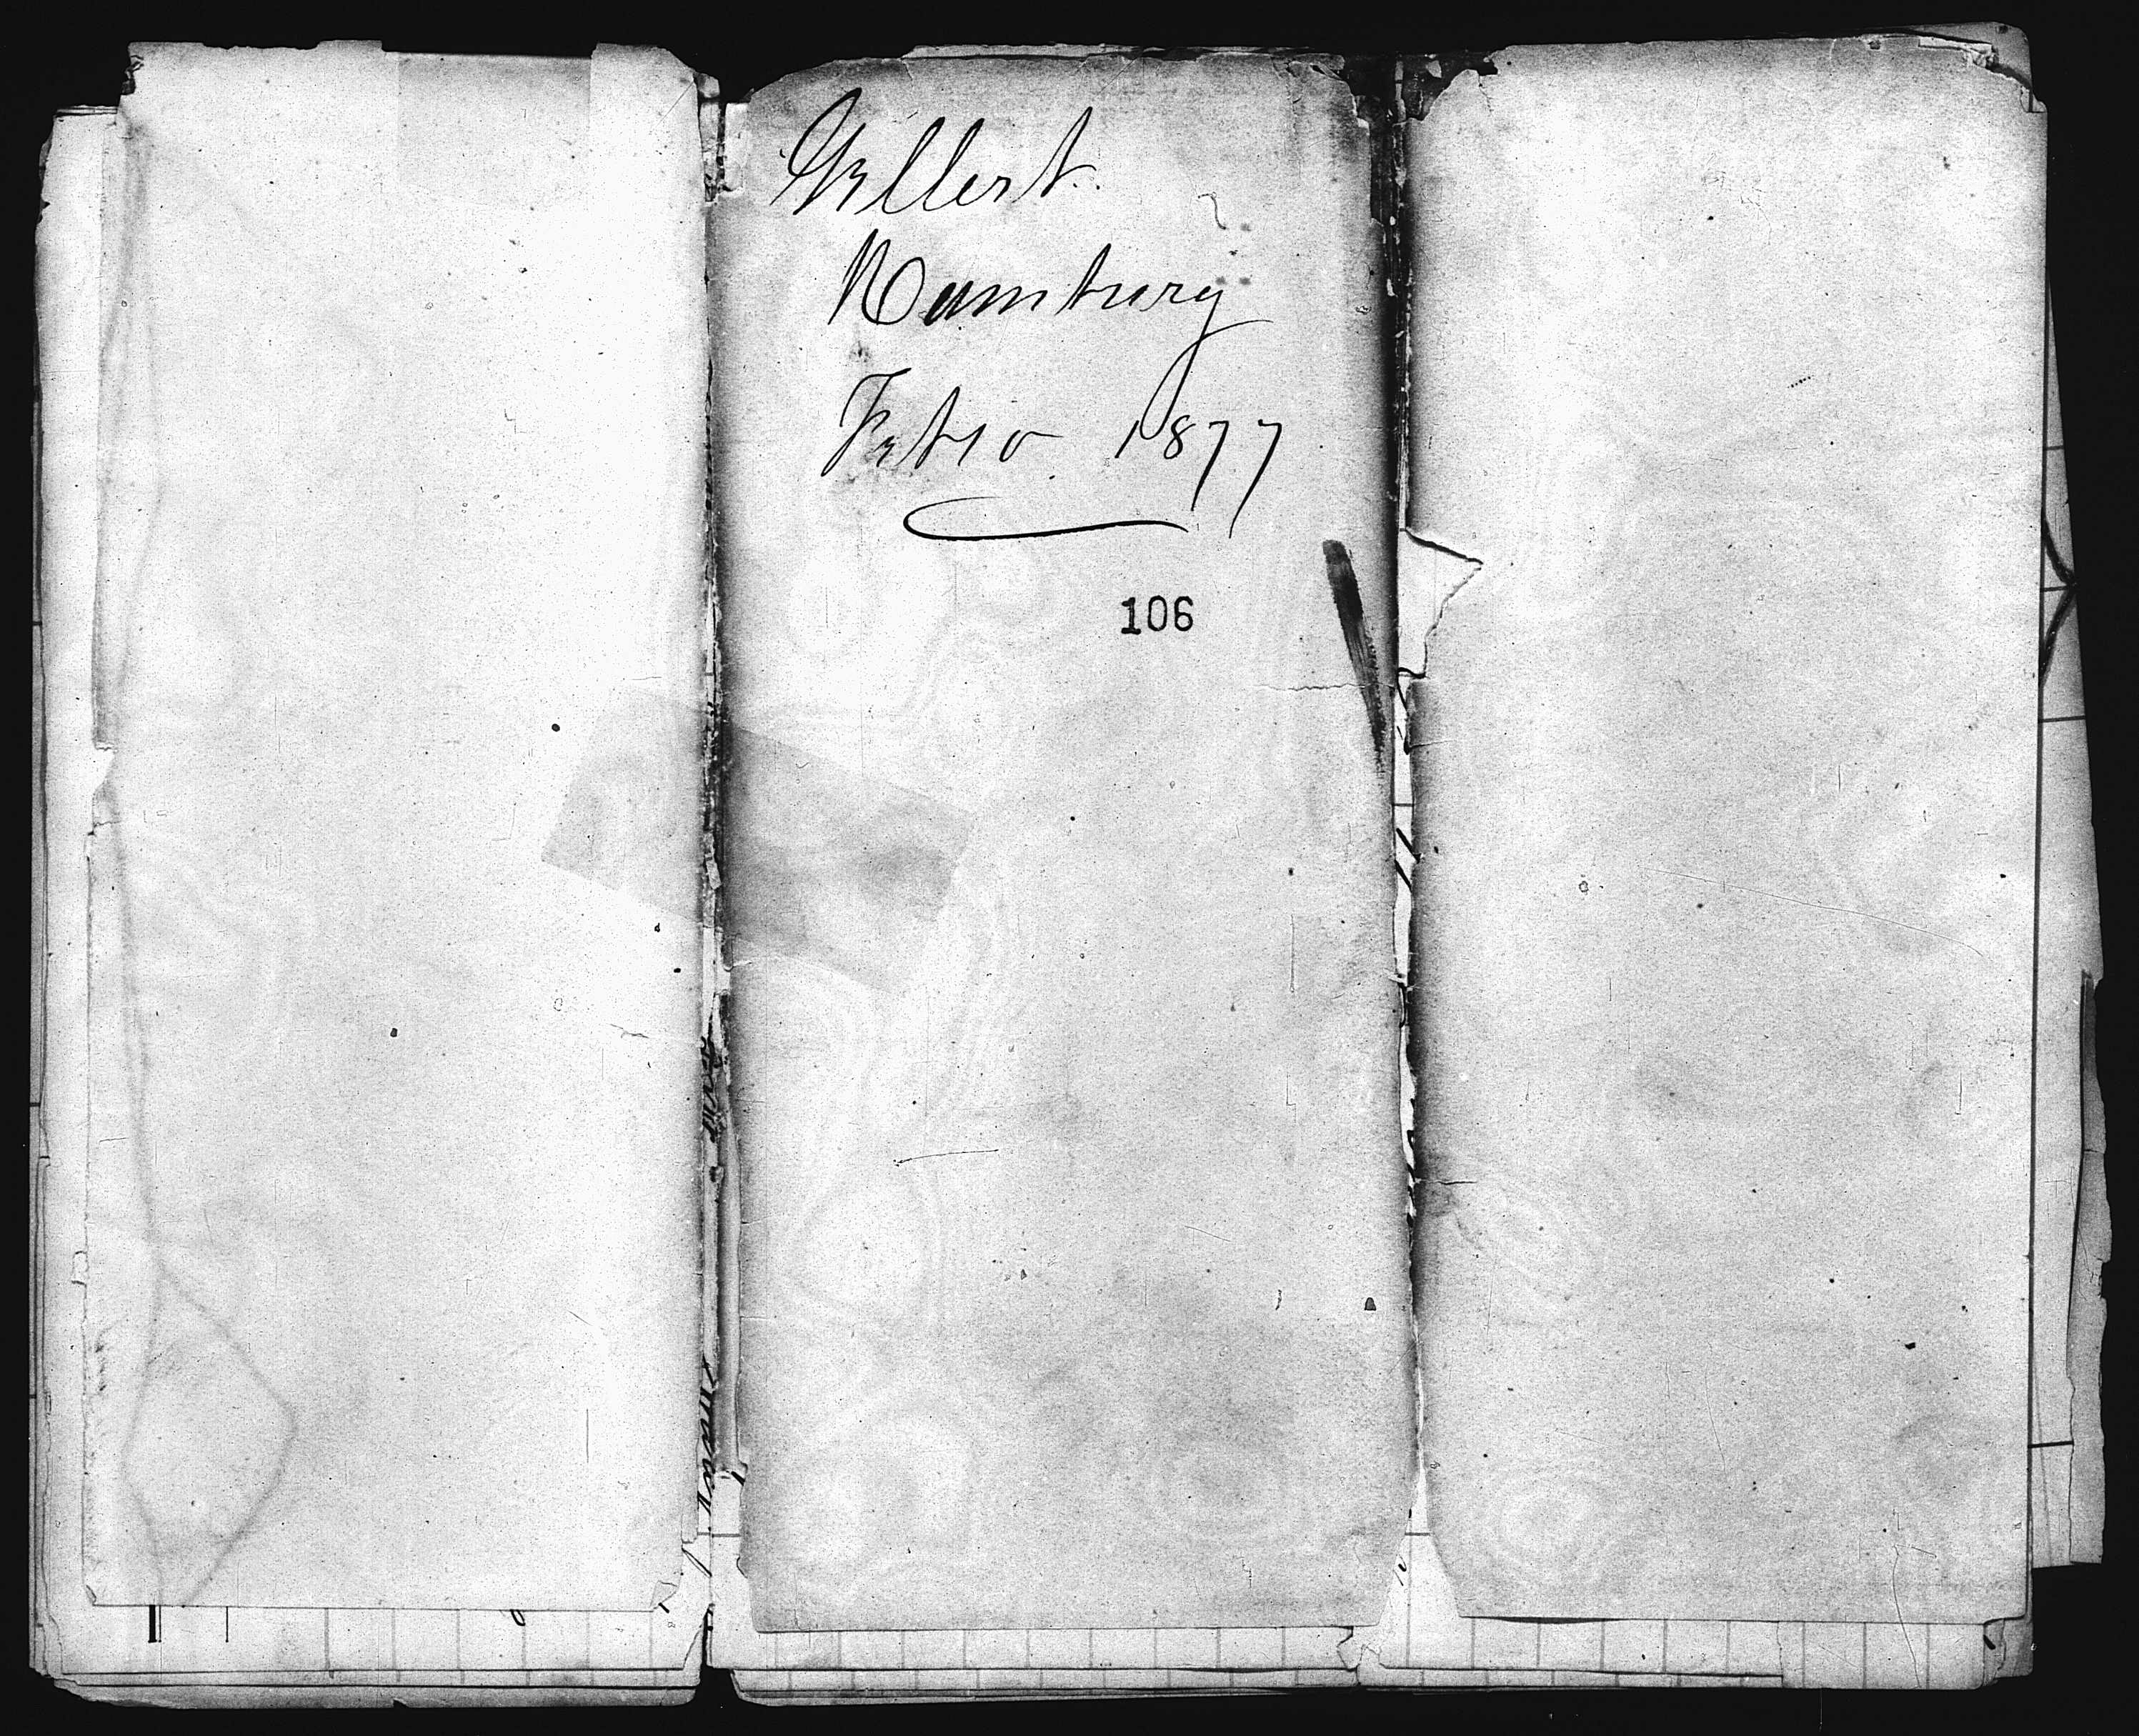 Gellert
Hamburg
Feb 10 1877
106